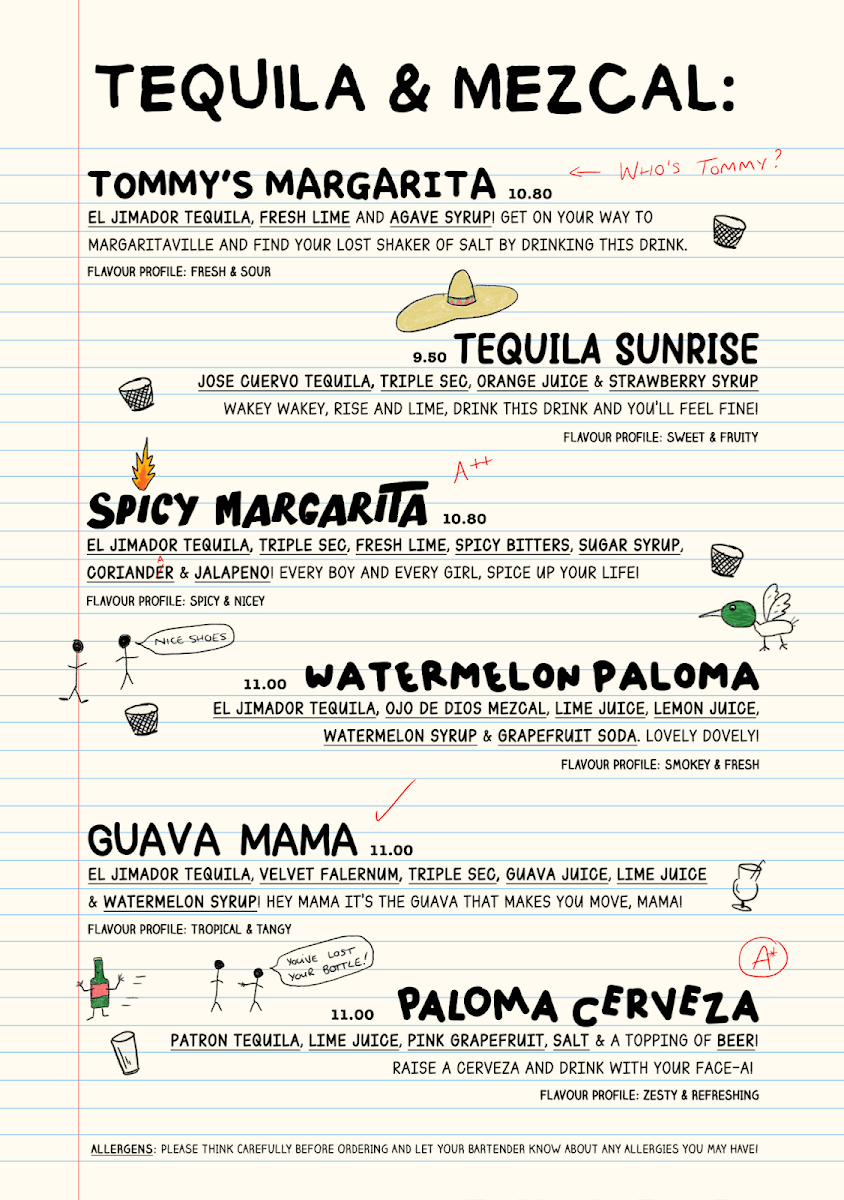 TEQUILA & MEZCAL:
TOMMY'S MARGARITA 10.80 ← WHO'S TOMMY?
EL JIMADOR TEQUILA, FRESH LIME AND AGAVE SYRUP! GET ON YOUR WAY TO
MARGARITAVILLE AND FIND YOUR LOST SHAKER OF SALT BY DRINKING THIS DRINK.
FLAVOUR PROFILE: FRESH & SOUR
9.50 TEQUILA SUNRISE
JOSE CUERVO TEQUILA, TRIPLE SEC, ORANGE JUICE & STRAWBERRY SYRUP
WAKEY WAKEY, RISE AND LIME, DRINK THIS DRINK AND YOU'LL FEEL FINE!
FLAVOUR PROFILE: SWEET & FRUITY
A++
SPICY MARGARITA 10.80
EL JIMADOR TEQUILA, TRIPLE SEC, FRESH LIME, SPICY BITTERS, SUGAR SYRUP,
A
CORIANDER & JALAPENO! EVERY BOY AND EVERY GIRL, SPICE UP YOUR LIFE!
FLAVOUR PROFILE: SPICY & NICEY
NICE SHOES
11.00 WATERMELON PALOMA
EL JIMADOR TEQUILA, OJO DE DIOS MEZCAL, LIME JUICE, LEMON JUICE,
WATERMELON SYRUP & GRAPEFRUIT SODA. LOVELY DOVELY!
FLAVOUR PROFILE: SMOKEY & FRESH
GUAVA MAMA 11.00
EL JIMADOR TEQUILA, VELVET FALERNUM, TRIPLE SEC, GUAVA JUICE, LIME JUICE
& WATERMELON SYRUP! HEY MAMA IT'S THE GUAVA THAT MAKES YOU MOVE, MAMA!
FLAVOUR PROFILE: TROPICAL & TANGY
YOU'VE LOST
YOUR BOTTLE!
A*
11.00 PALOMA CERVEZA
PATRON TEQUILA, LIME JUICE, PINK GRAPEFRUIT, SALT & A TOPPING OF BEER!
RAISE A CERVEZA AND DRINK WITH YOUR FACE-A!
FLAVOUR PROFILE: ZESTY & REFRESHING
ALLERGENS: PLEASE THINK CAREFULLY BEFORE ORDERING AND LET YOUR BARTENDER KNOW ABOUT ANY ALLERGIES YOU MAY HAVE!